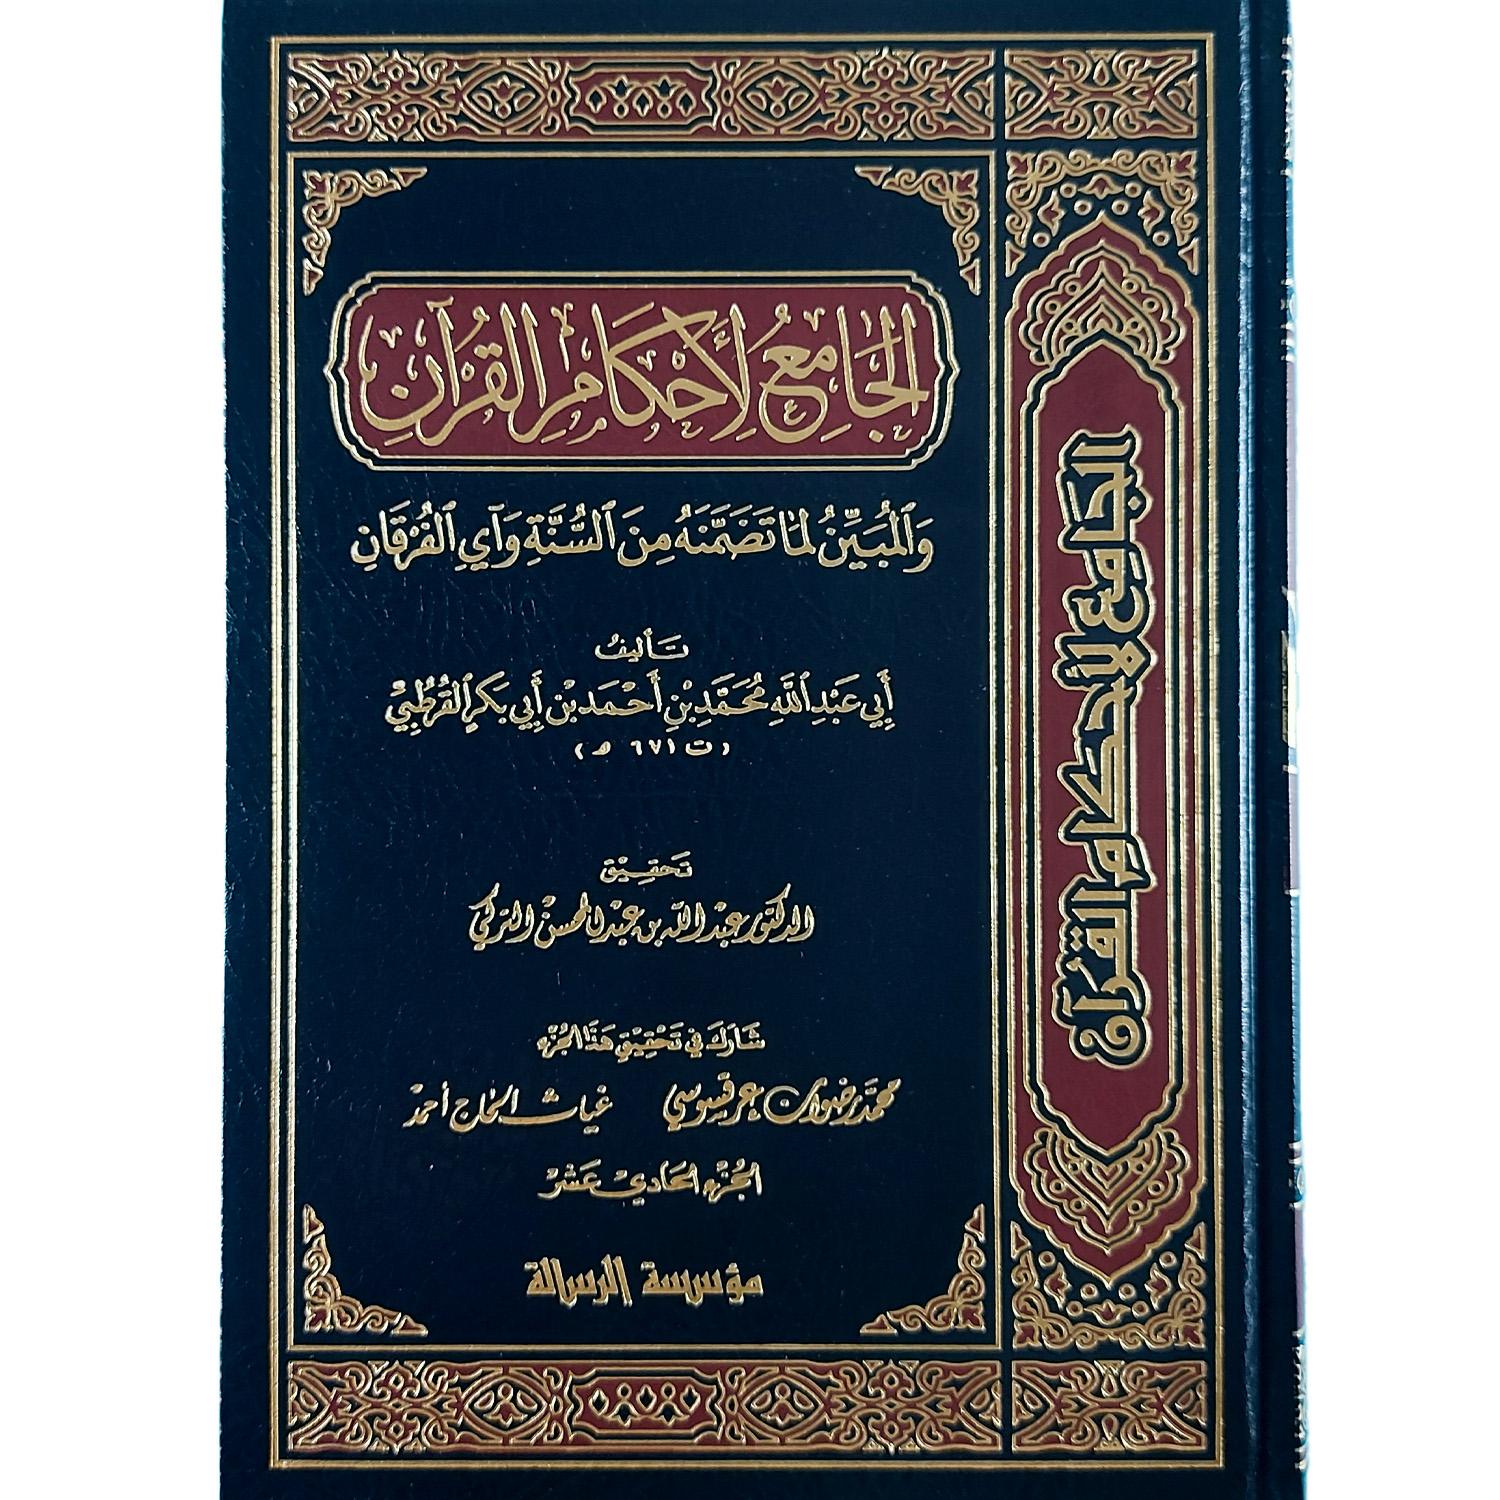 الجَامِعُ لِأَحْكَامِ القُرْآنِ
وَالمُبَيِّنُ لِمَا تَضَمَّنَهُ مِنَ السُّنَّةِ وَآيِ الفُرْقَانِ
تَأليفُ
أَبِي عَبْدِ اللَّهِ مُحَمَّدِ بْنِ أَحْمَدَ بْنِ أَبِي بَكْرٍ القُرْطُبِيِّ
(ت ٦٧١ هـ)
تَحقِيْق
الدكتور عبد الله بن عبد المحسن التركي
شَارَكَ فِي تَحْقِيْقِ هَذَا الجُزْءِ
محمد رضوان عرقسوسي غياث الحاج أحمد
الجُزْء الحَادِي عَشَر
مؤسسة الرسالة
الجَامِع لِأَحكَام القُرآن